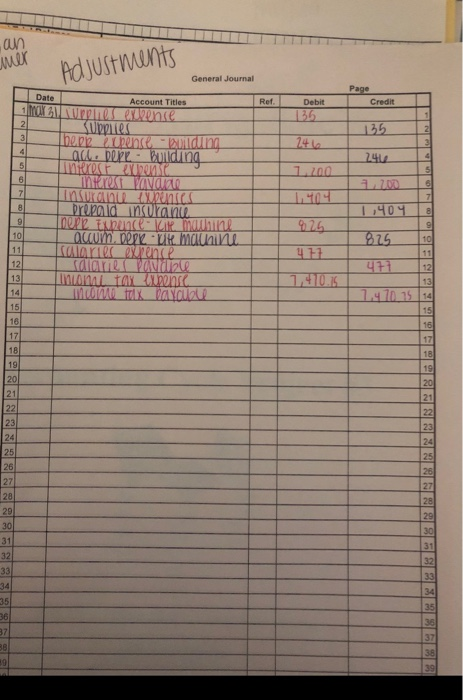 an
mer
Adjustments
General Journal
Page
Date Account Titles Ref. Debit Credit
1 mar 31 supplies expense 135 1
2 supplies 135 2
3 depr expence - building 246 3
4 acc. depr - Building 246 4
5 interest expense 7,200 5
6 interest payable 7,200 6
7 insurance expenses 1,404 7
8 prepaid insurance 1,404 8
9 depr expence - machine 825 9
10 accum. depr - machine 825 10
11 salaries expence 477 11
12 salaries payable 477 12
13 income tax expense 7,470.75 13
14 income tax payable 7,470.75 14
15 15
16 16
17 17
18 18
19 19
20 20
21 21
22 22
23 23
24 24
25 25
26 26
27 27
28 28
29 29
30 30
31 31
32 32
33 33
34 34
35 35
36 36
37 37
38 38
39 39